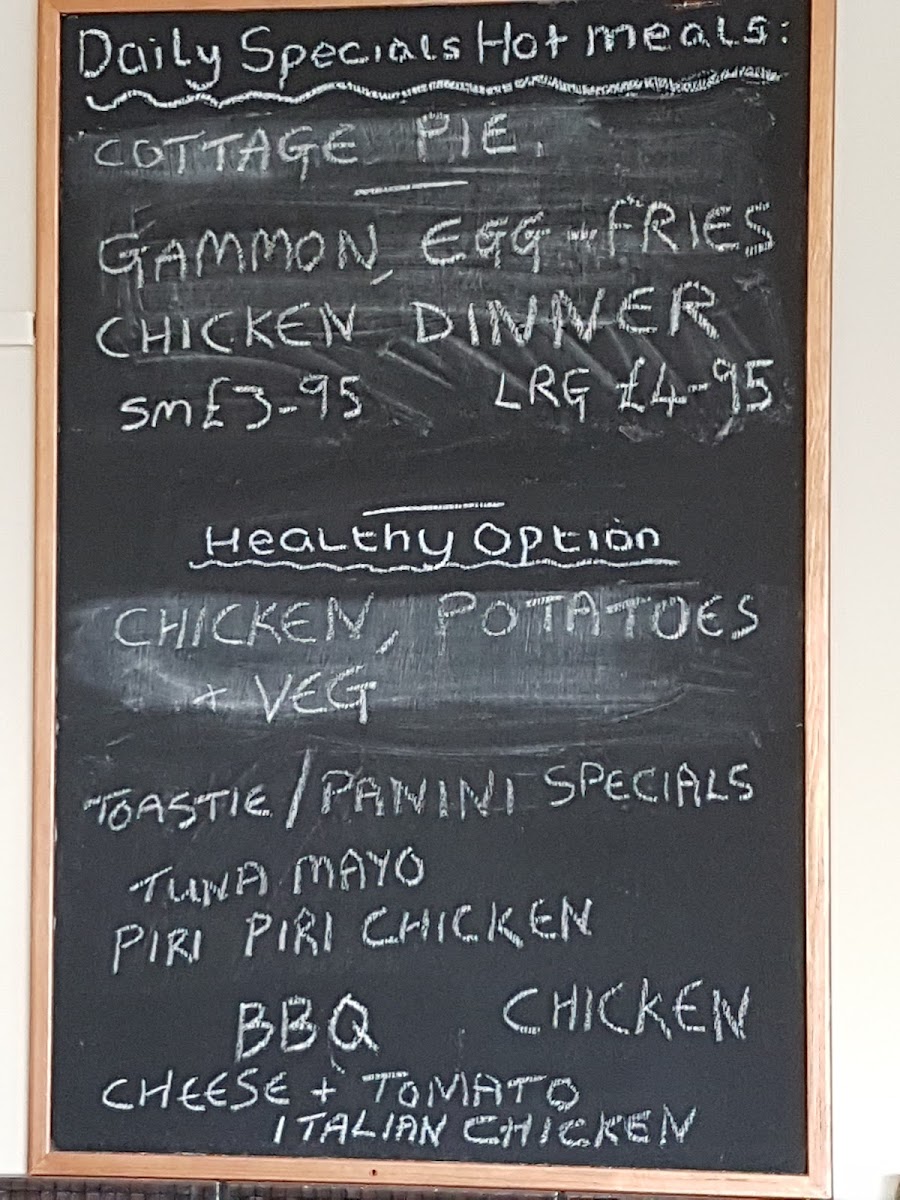 Daily Specials Hot meals:
COTTAGE PIE.
GAMMON, EGG + FRIES
CHICKEN DINNER
Sm £3-95 LRG £4-95
Healthy Option
CHICKEN, POTATOES
+ VEG
TOASTIE / PANINI SPECIALS
TUNA MAYO
PIRI PIRI CHICKEN
BBQ CHICKEN
CHEESE + TOMATO
ITALIAN CHICKEN